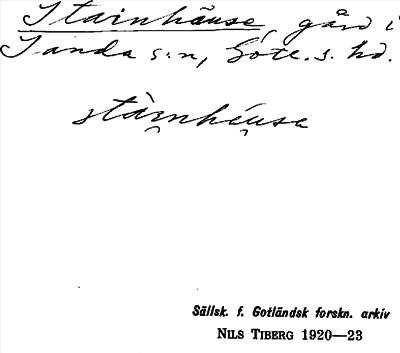 Stainhäuse, gård i
Sanda s:n, Göte. s. hd.
stàinhéuse
Sällsk. f. Gotländsk forskn. arkiv
NILS TIBERG 1920—23